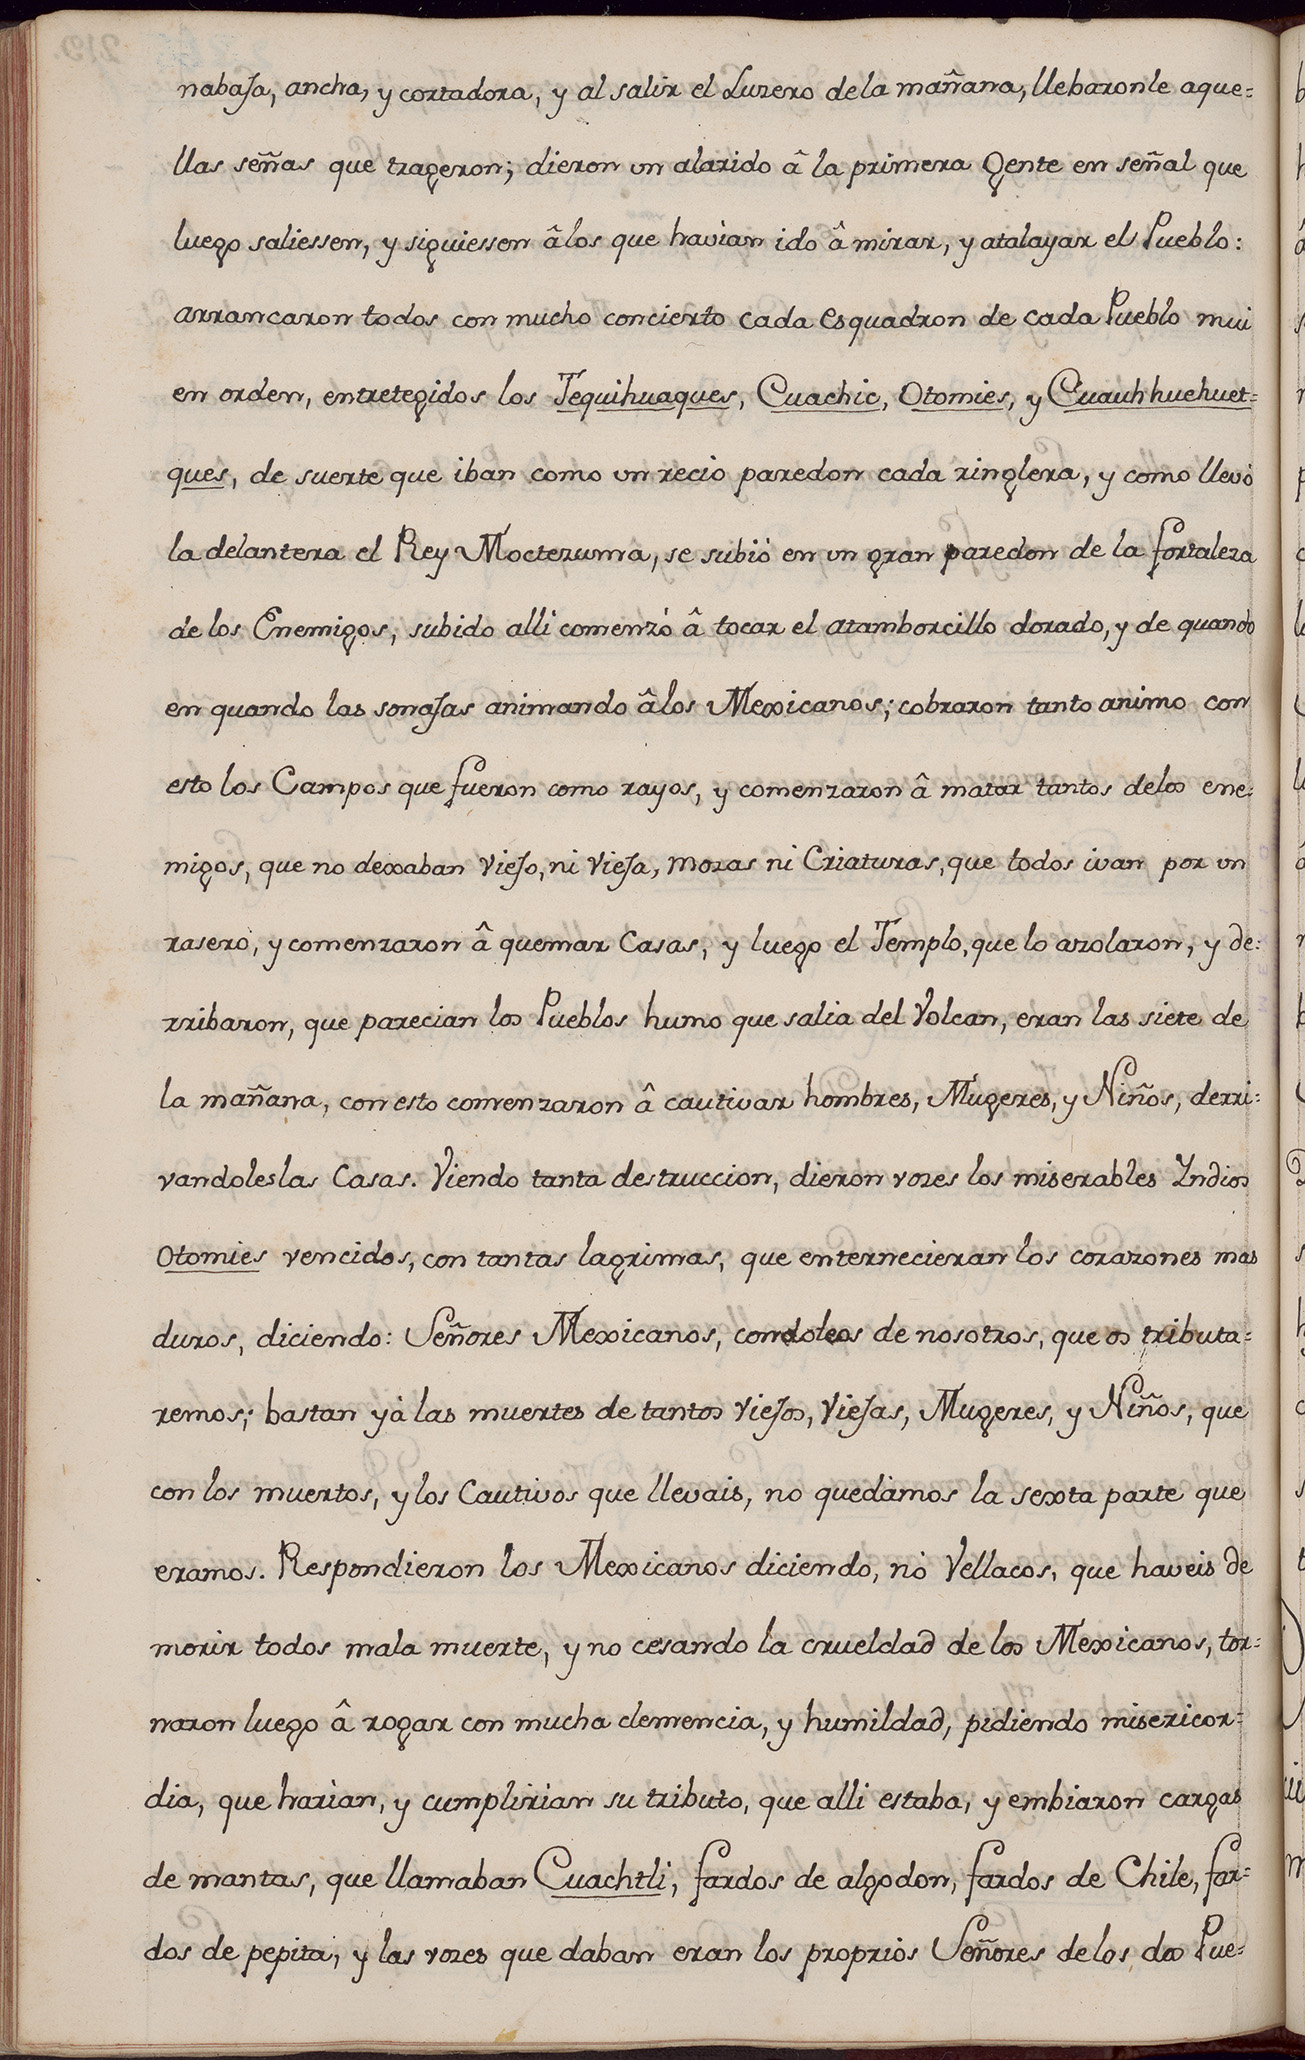 nabaja, ancha, y cortadora, y al salir el Luzero dela mañana, llebaronle aque=
llas señas que trageron; dieron un alarido â la primera Gente en señal que
luego saliessen, y siguiessen âlos que havian ido â mirar, y atalayar el Pueblo:
arrancaron todos con mucho concierto cada esquadron de cada Pueblo mui
en orden, entretegidos los Tequihuaques, Cuachic, Otomies, y Cuauhhuehuet=
ques, de suerte que iban como un recio paredon cada ringlera, y como llevó
la delantera el Rey Moctezuma, se subió en un gran paredon de la fortaleza
de los Enemigos, subido alli comenzó â tocar el atamborcillo dorado, y de quando
en quando las sonajas animando âlos Mexicanos; cobraron tanto animo con
esto los Campos que fueron como rayos, y comenzaron â matar tantos delos ene=
migos, que no dexaban viejo, ni vieja, mozas ni Criaturas, que todos ivan por un
rasero, y comenzaron â quemar Casas, y luego el Templo, que lo azolaron, y de=
rribaron, que parecian los Pueblos humo que salia del Volcan, eran las siete de
la mañana, con esto comenzaron â cautivar hombres, Mugeres, y Niños, derri=
vandoleslas Casas. Viendo tanta destruccion, dieron vozes los miserables Yndios
Otomies vencidos, con tantas lagrimas, que enternecieran los corazones mas
duros, diciendo: Señores Mexicanos, condoleos de nosotros, que os tributa=
remos; bastan yá las muertes de tantos viejos, viejas, Mugeres, y Niños, que
con los muertos, y los Cautivos que llevais, no quedamos la sexta parte que
eramos. Respondieron los Mexicanos diciendo, nó Vellacos, que haveis de
morir todos mala muerte, y no cesando la crueldad de los Mexicanos, tor=
naron luego â rogar con mucha clemencia, y humildad, pidiendo misericor=
dia, que harian, y cumplirian su tributo, que alli estaba, y embiaron cargas
de mantas, que llamaban Cuachtli, fardos de algodon, fardos de Chile, far=
dos de pepita, y las vozes que daban eran los proprios Señores delos dos Pue=